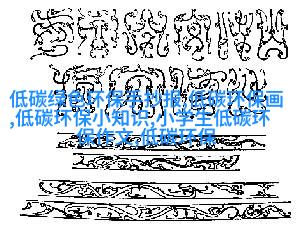 低碳绿色环保手抄报,低碳环保画
,低碳环保小知识,小学生低碳环
保作文,低碳环保